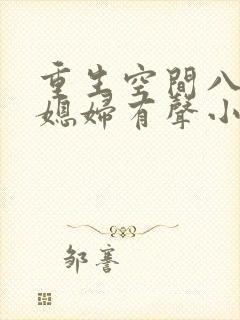 重生空間八
媳婦有聲小
邹謇